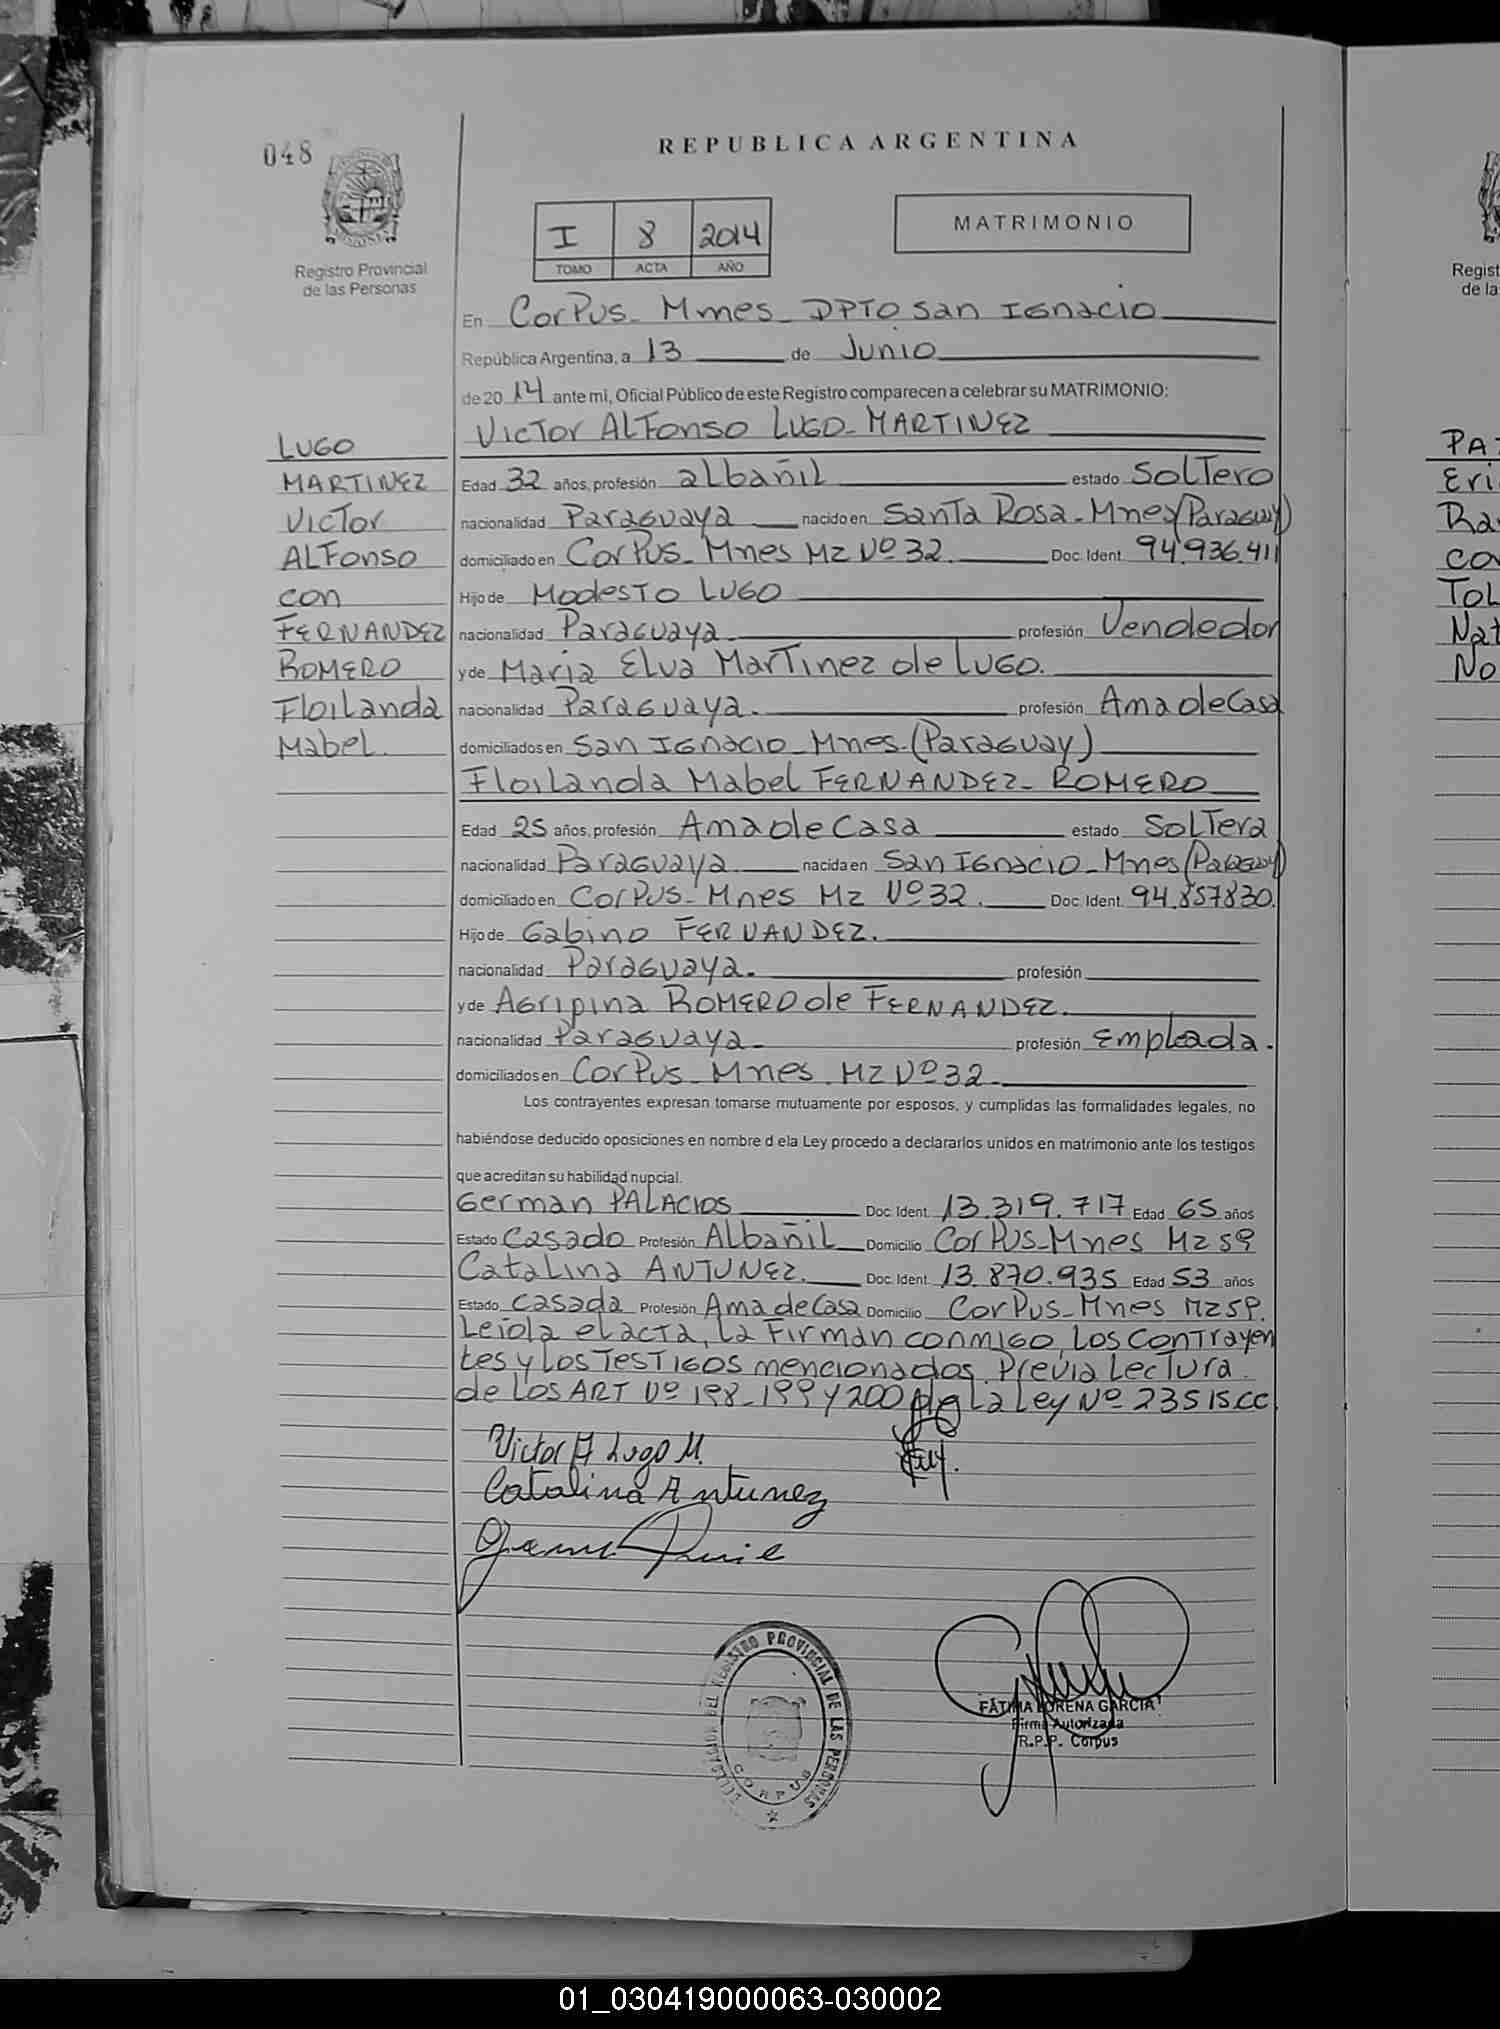 048
REPUBLICA ARGENTINA
Registro Provincial
de las Personas
I 8 2014
TOMO ACTA AÑO
MATRIMONIO
En Corpus - Mnes - DPTO San Ignacio
República Argentina, a 13 de Junio
de 2014 ante mi, Oficial Público de este Registro comparecen a celebrar su MATRIMONIO:
Victor Alfonso Lugo - MARTINEZ
LUGO
MARTINEZ
Victor
Alfonso
con
FERNANDEZ
ROMERO
Floilanda
Mabel.
Edad 32 años, profesión albañil estado Soltero
nacionalidad Paraguaya nacido en Santa Rosa - Mnes (Paraguay)
domiciliado en Corpus - Mnes Mz Nº 32. Doc. Ident. 94.936.411
Hijo de Modesto Lugo
nacionalidad Paraguaya profesión Vendedor
y de Maria Elva Martinez de Lugo.
nacionalidad Paraguaya. profesión Ama de Casa
domiciliados en San Ignacio - Mnes - (Paraguay)
Floilanda Mabel FERNANDEZ - ROMERO
Edad 25 años, profesión Ama de Casa estado Soltera
nacionalidad Paraguaya nacida en San Ignacio - Mnes (Paraguay)
domiciliado en Corpus - Mnes Mz Nº 32. Doc. Ident. 94.857830.
Hijo de Gabino FERNANDEZ.
nacionalidad Paraguaya. profesión
y de Agripina ROMERO de FERNANDEZ.
nacionalidad Paraguaya profesión Empleada.
domiciliados en Corpus - Mnes. Mz Nº 32
Los contrayentes expresan tomarse mutuamente por esposos, y cumplidas las formalidades legales, no
habiéndose deducido oposiciones en nombre d ela Ley procedo a declararlos unidos en matrimonio ante los testigos
que acreditan su habilidad nupcial.
German PALACIOS Doc. Ident. 13.319.717 Edad 65 años
Estado Casado Profesión Albañil Domicilio Corpus - Mnes Mz 59
Catalina ANTUNEZ. Doc. Ident. 13.870.935 Edad 53 años
Estado Casada Profesión Ama de Casa Domicilio Corpus - Mnes Mz 59.
Leida el acta, la firman conmigo, los contrayen
tes y los testigos mencionados. Previa Lectura
de los ART Nº 198 - 199 y 200 la Ley Nº 23515.CC
Victor A Lugo M.
Catalina Antunez
FÁTIMA LORENA GARCIA
Firma Autorizada
R.P.P. Corpus
DEL REGISTRO PROVINCIAL DE LAS PERSONAS
CORPUS
Regist
de la
PA
Eri
Ra
co
Tol
Nat
No
01_030419000063-030002